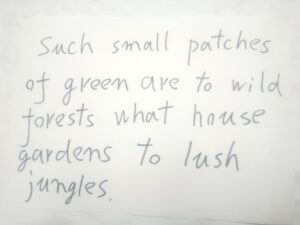 Such small patches
of green are to wild
forests what house
gardens to lush
jungles.